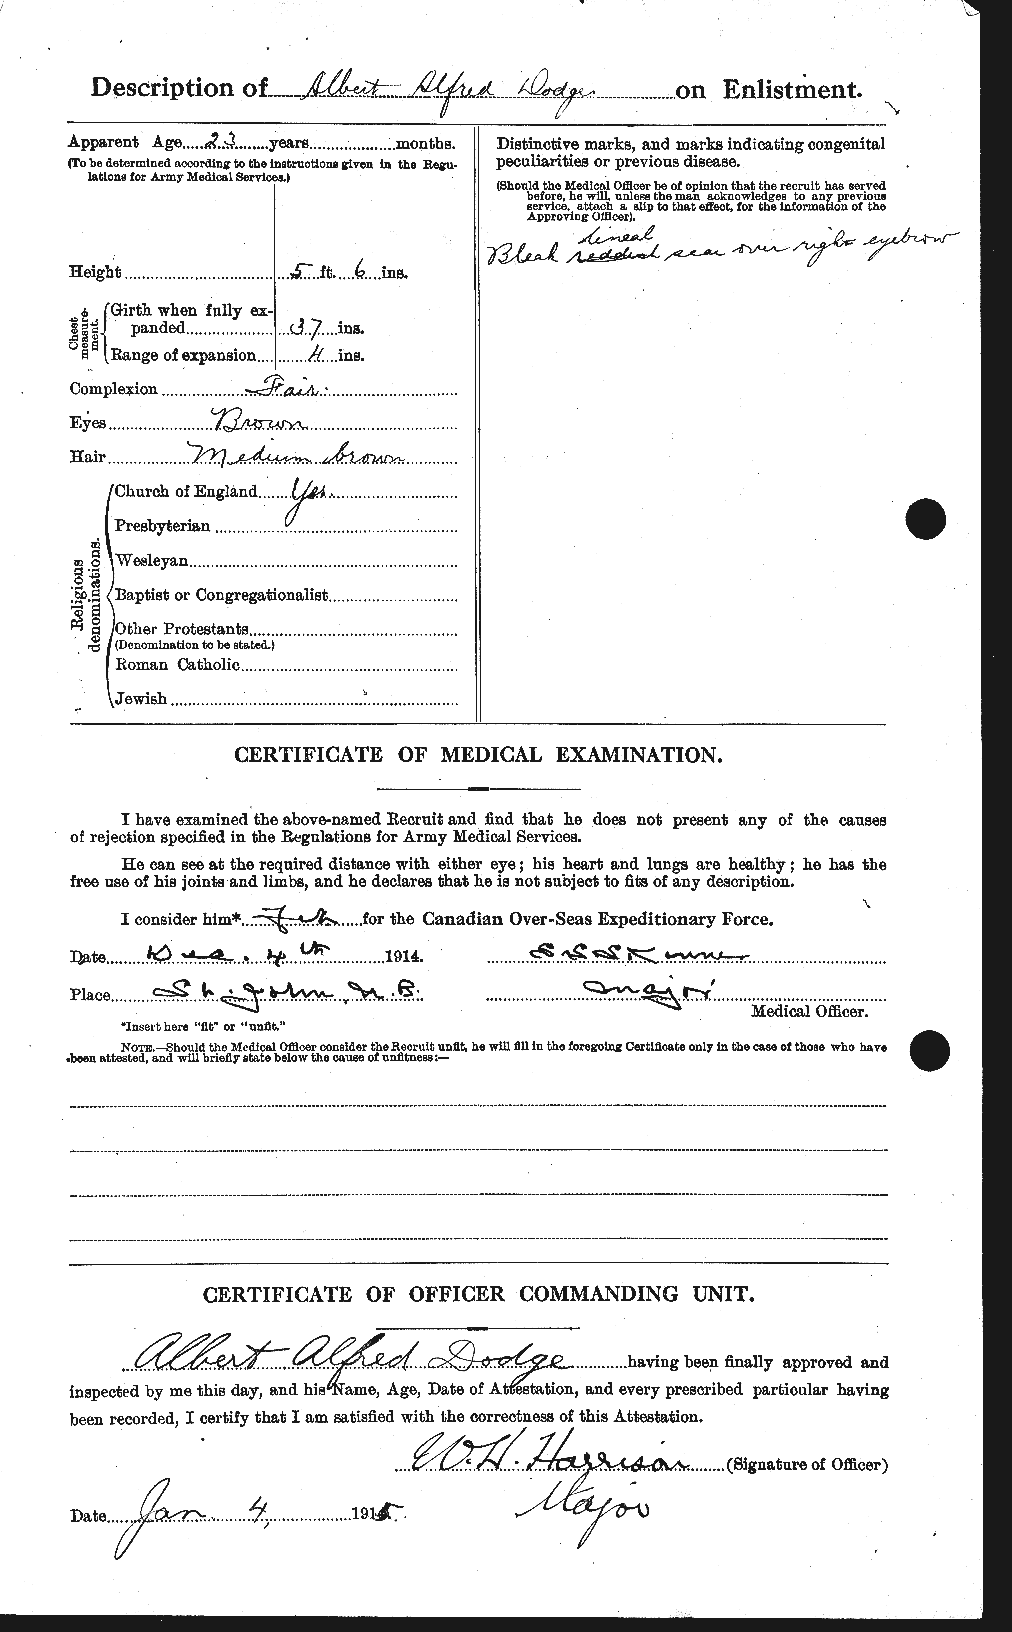 Description of Albert Alfred Dodge on Enlistment.
Apparent Age 23 years months.
(To be determined according to the instructions given in the Regu-
lations for Army Medical Services.)
Height 5 ft. 6 ins.
Chest measure-ment.
Girth when fully ex-
panded 37 ins.
Range of expansion 4 ins.
Complexion Fair.
Eyes Brown
Hair Medium brown
Religious denominations.
Church of England Yes.
Presbyterian
Wesleyan
Baptist or Congregationalist
Other Protestants
(Denomination to be stated.)
Roman Catholic
Jewish
Distinctive marks, and marks indicating congenital
peculiarities or previous disease.
(Should the Medical Officer be of opinion that the recruit has served
before, he will, unless the man acknowledges to any previous
service, attach a slip to that effect, for the information of the
Approving Officer).
lineal
reddish scar over right eyebrow
CERTIFICATE OF MEDICAL EXAMINATION.
I have examined the above-named Recruit and find that he does not present any of the causes
of rejection specified in the Regulations for Army Medical Services.
He can see at the required distance with either eye; his heart and lungs are healthy; he has the
free use of his joints and limbs, and he declares that he is not subject to fits of any description.
I consider him* Fit for the Canadian Over-Seas Expeditionary Force.
Date Dec. 4th 1914. Skinner
Place St. John, N.B. Major
Medical Officer.
*Insert here "fit" or "unfit."
NOTE.—Should the Medical Officer consider the Recruit unfit, he will fill in the foregoing Certificate only in the case of those who have
been attested, and will briefly state below the cause of unfitness:—
CERTIFICATE OF OFFICER COMMANDING UNIT.
Albert Alfred Dodge having been finally approved and
inspected by me this day, and his Name, Age, Date of Attestation, and every prescribed particular having
been recorded, I certify that I am satisfied with the correctness of this Attestation.
W. H. Harrison (Signature of Officer)
Major
Date Jan 4, 1915.